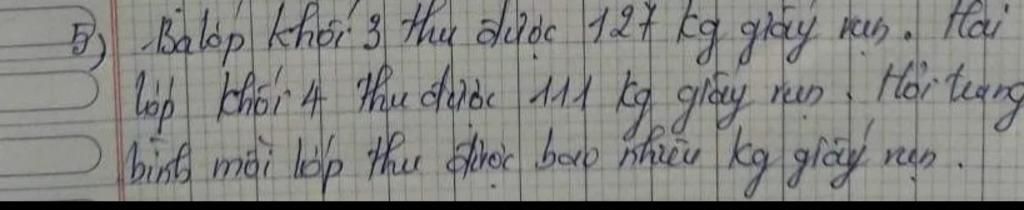 5) Ba lớp khối 3 thu được 127 kg giấy vụn. Hai
lớp khối 4 thu được 111 kg giấy vụn. Hỏi trung
bình mỗi lớp thu được bao nhiêu kg giấy vụn.